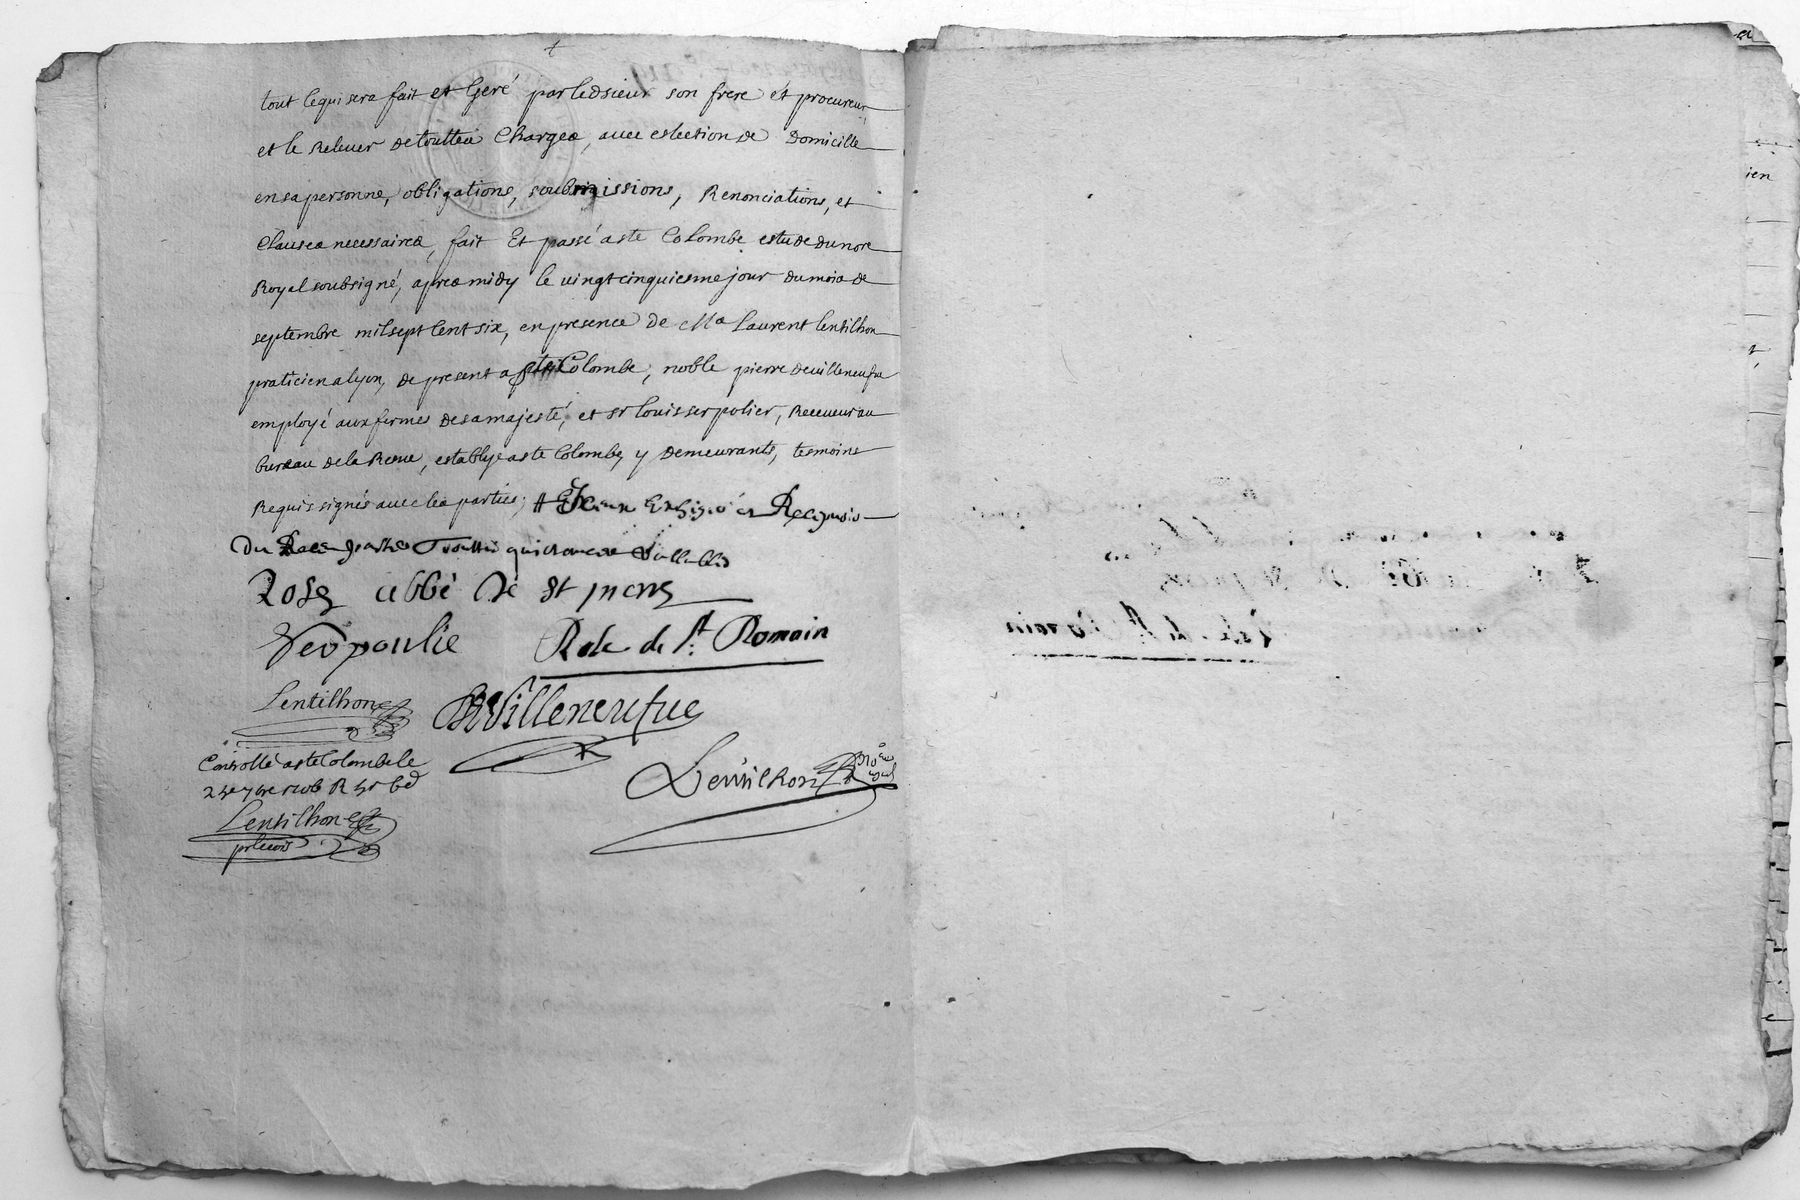 tout ce qui sera fait et Geré par ledsieur son frere et procureur
et le Relever de touttes Charges, avec eslection de Domicille
en sa personne, obligations, soubmissions, Renonciations, et
Clauses necessaires, fait Et passé a ste Colombe estude du nore
Royal soubsigné, apres midy le vingt cinquiesme jour du mois de
septembre mil sept Cent six, en presence de Me Laurent Lentilhon
praticien a lyon, de present a ste Colombe, noble pierre devilleneufue
employé aux fermes de sa majesté, et sr louis serpolier, Receveur au
bureau de la Reue, establye a ste Colombe, y demeurants, tesmoins
Requis signés avec les parties;
Du
Rose abbé de st
Rose de St. Romain
Lentilhon
DeVilleneufue
Controllé a ste Colombe le
Lentilhon
Lentilhon
ien